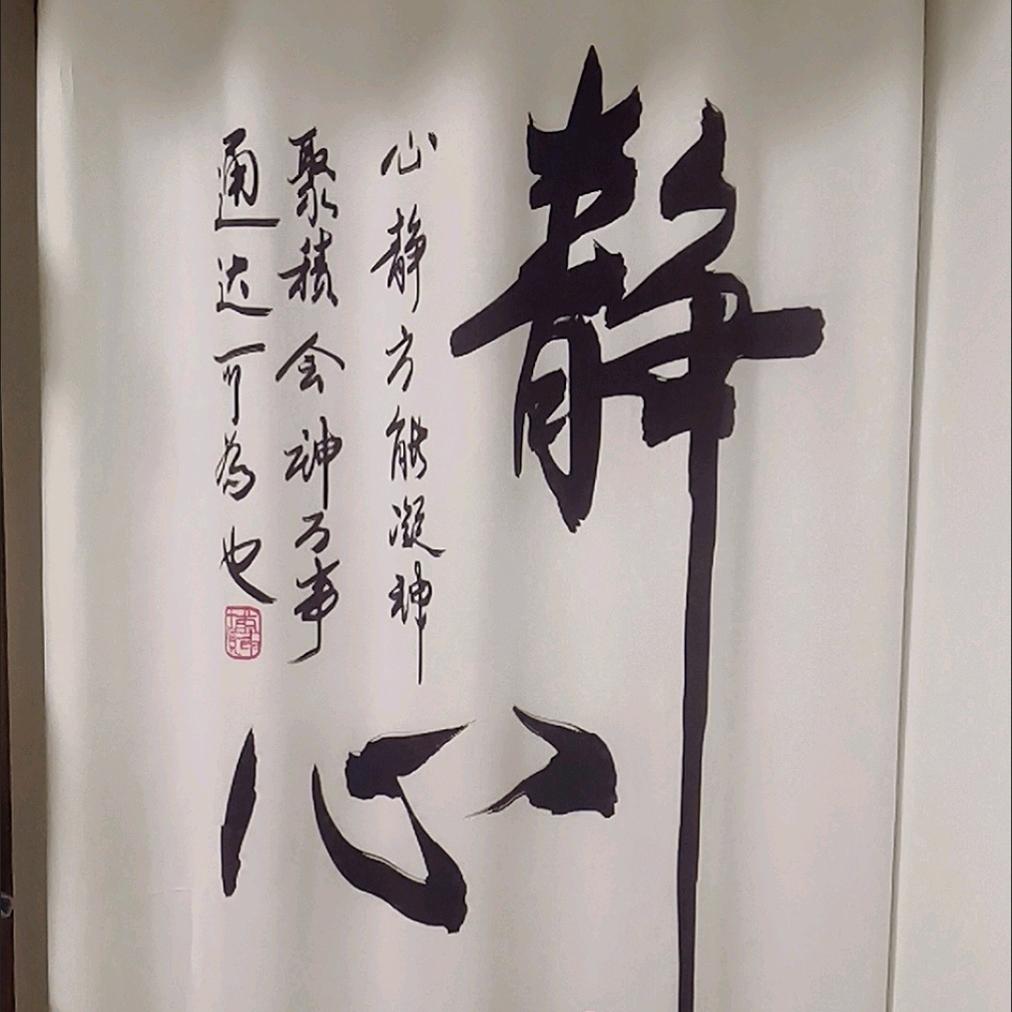 静心
心静方能凝神
聚積会神万事
通达可為也